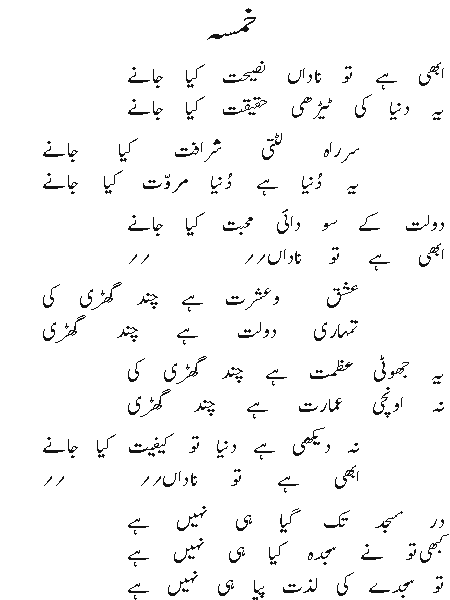 خمسہ
ابھی ہے تو ناداں نصیحت کیا جانے
یہ دنیا کی ٹیڑھی حقیقت کیا جانے
سرراہ لٹتی شرافت کیا جانے
یہ دُنیا ہے دُنیا مروّت کیا جانے
دولت کے سو دائی محبت کیا جانے
ابھی ہے تو ناداں // //
عشق وعشرت ہے چند گھڑی کی
تمہاری دولت ہے چند گھڑی
یہ جھوٹی عظمت ہے چند گھڑی کی
نہ اونچی عمارت ہے چند گھڑی
نہ دیکھی ہے دنیا تو کیفیت کیا جانے
ابھی ہے تو ناداں // //
در مسجد تک گیا ہی نہیں ہے
کبھی تو نے سجدہ کیا ہی نہیں ہے
تو سجدے کی لذت پیا ہی نہیں ہے